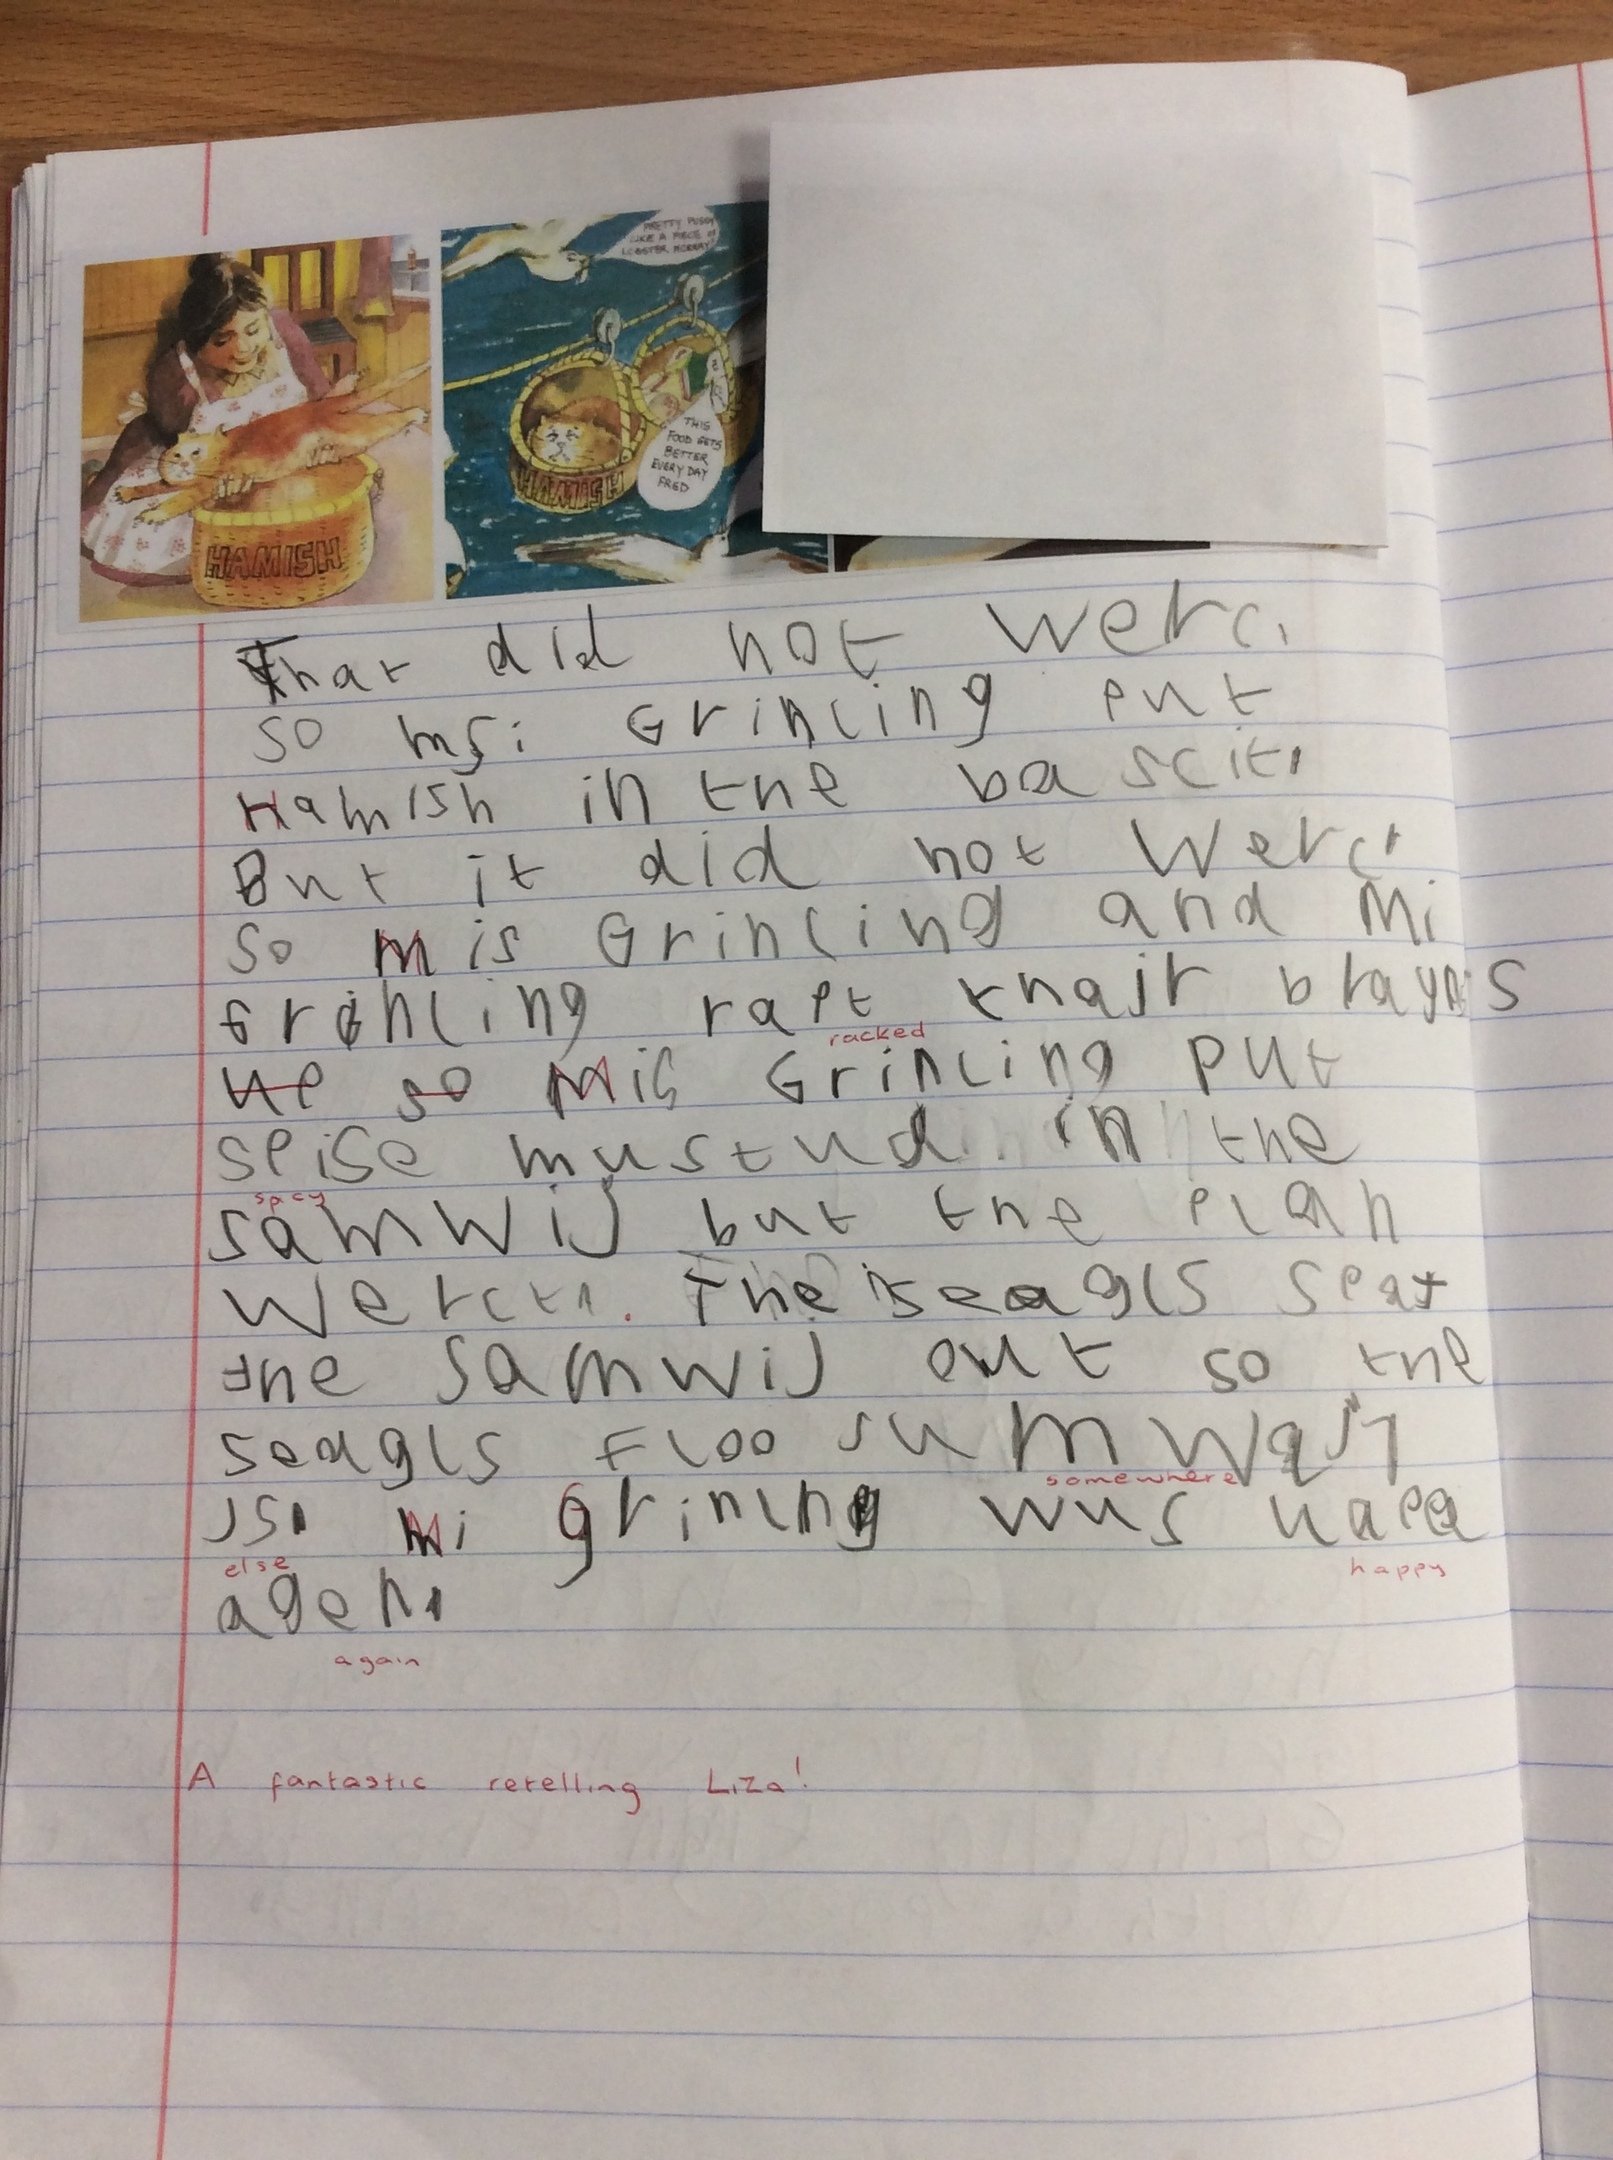 PRETTY PUSSY
LIKE A PIECE OF
LOBSTER MORNAY
THIS
FOOD GETS
BETTER
EVERY DAY
FRED
HAMISH
HAMISH
That did not werc.
so msi Grincling put
Hamish in the bascit.
But it did not werc.
so Mis Grincling and Mi
Grincling rapt thair brayns
racked
up so Mis Grincling put
speise mustud in the
spicy
samwij but the plan
werct. The seagls spat
the samwij out so the
seagls floo sumwair
somewhere
else
happy
agen.
again
A fantastic retelling Liza!